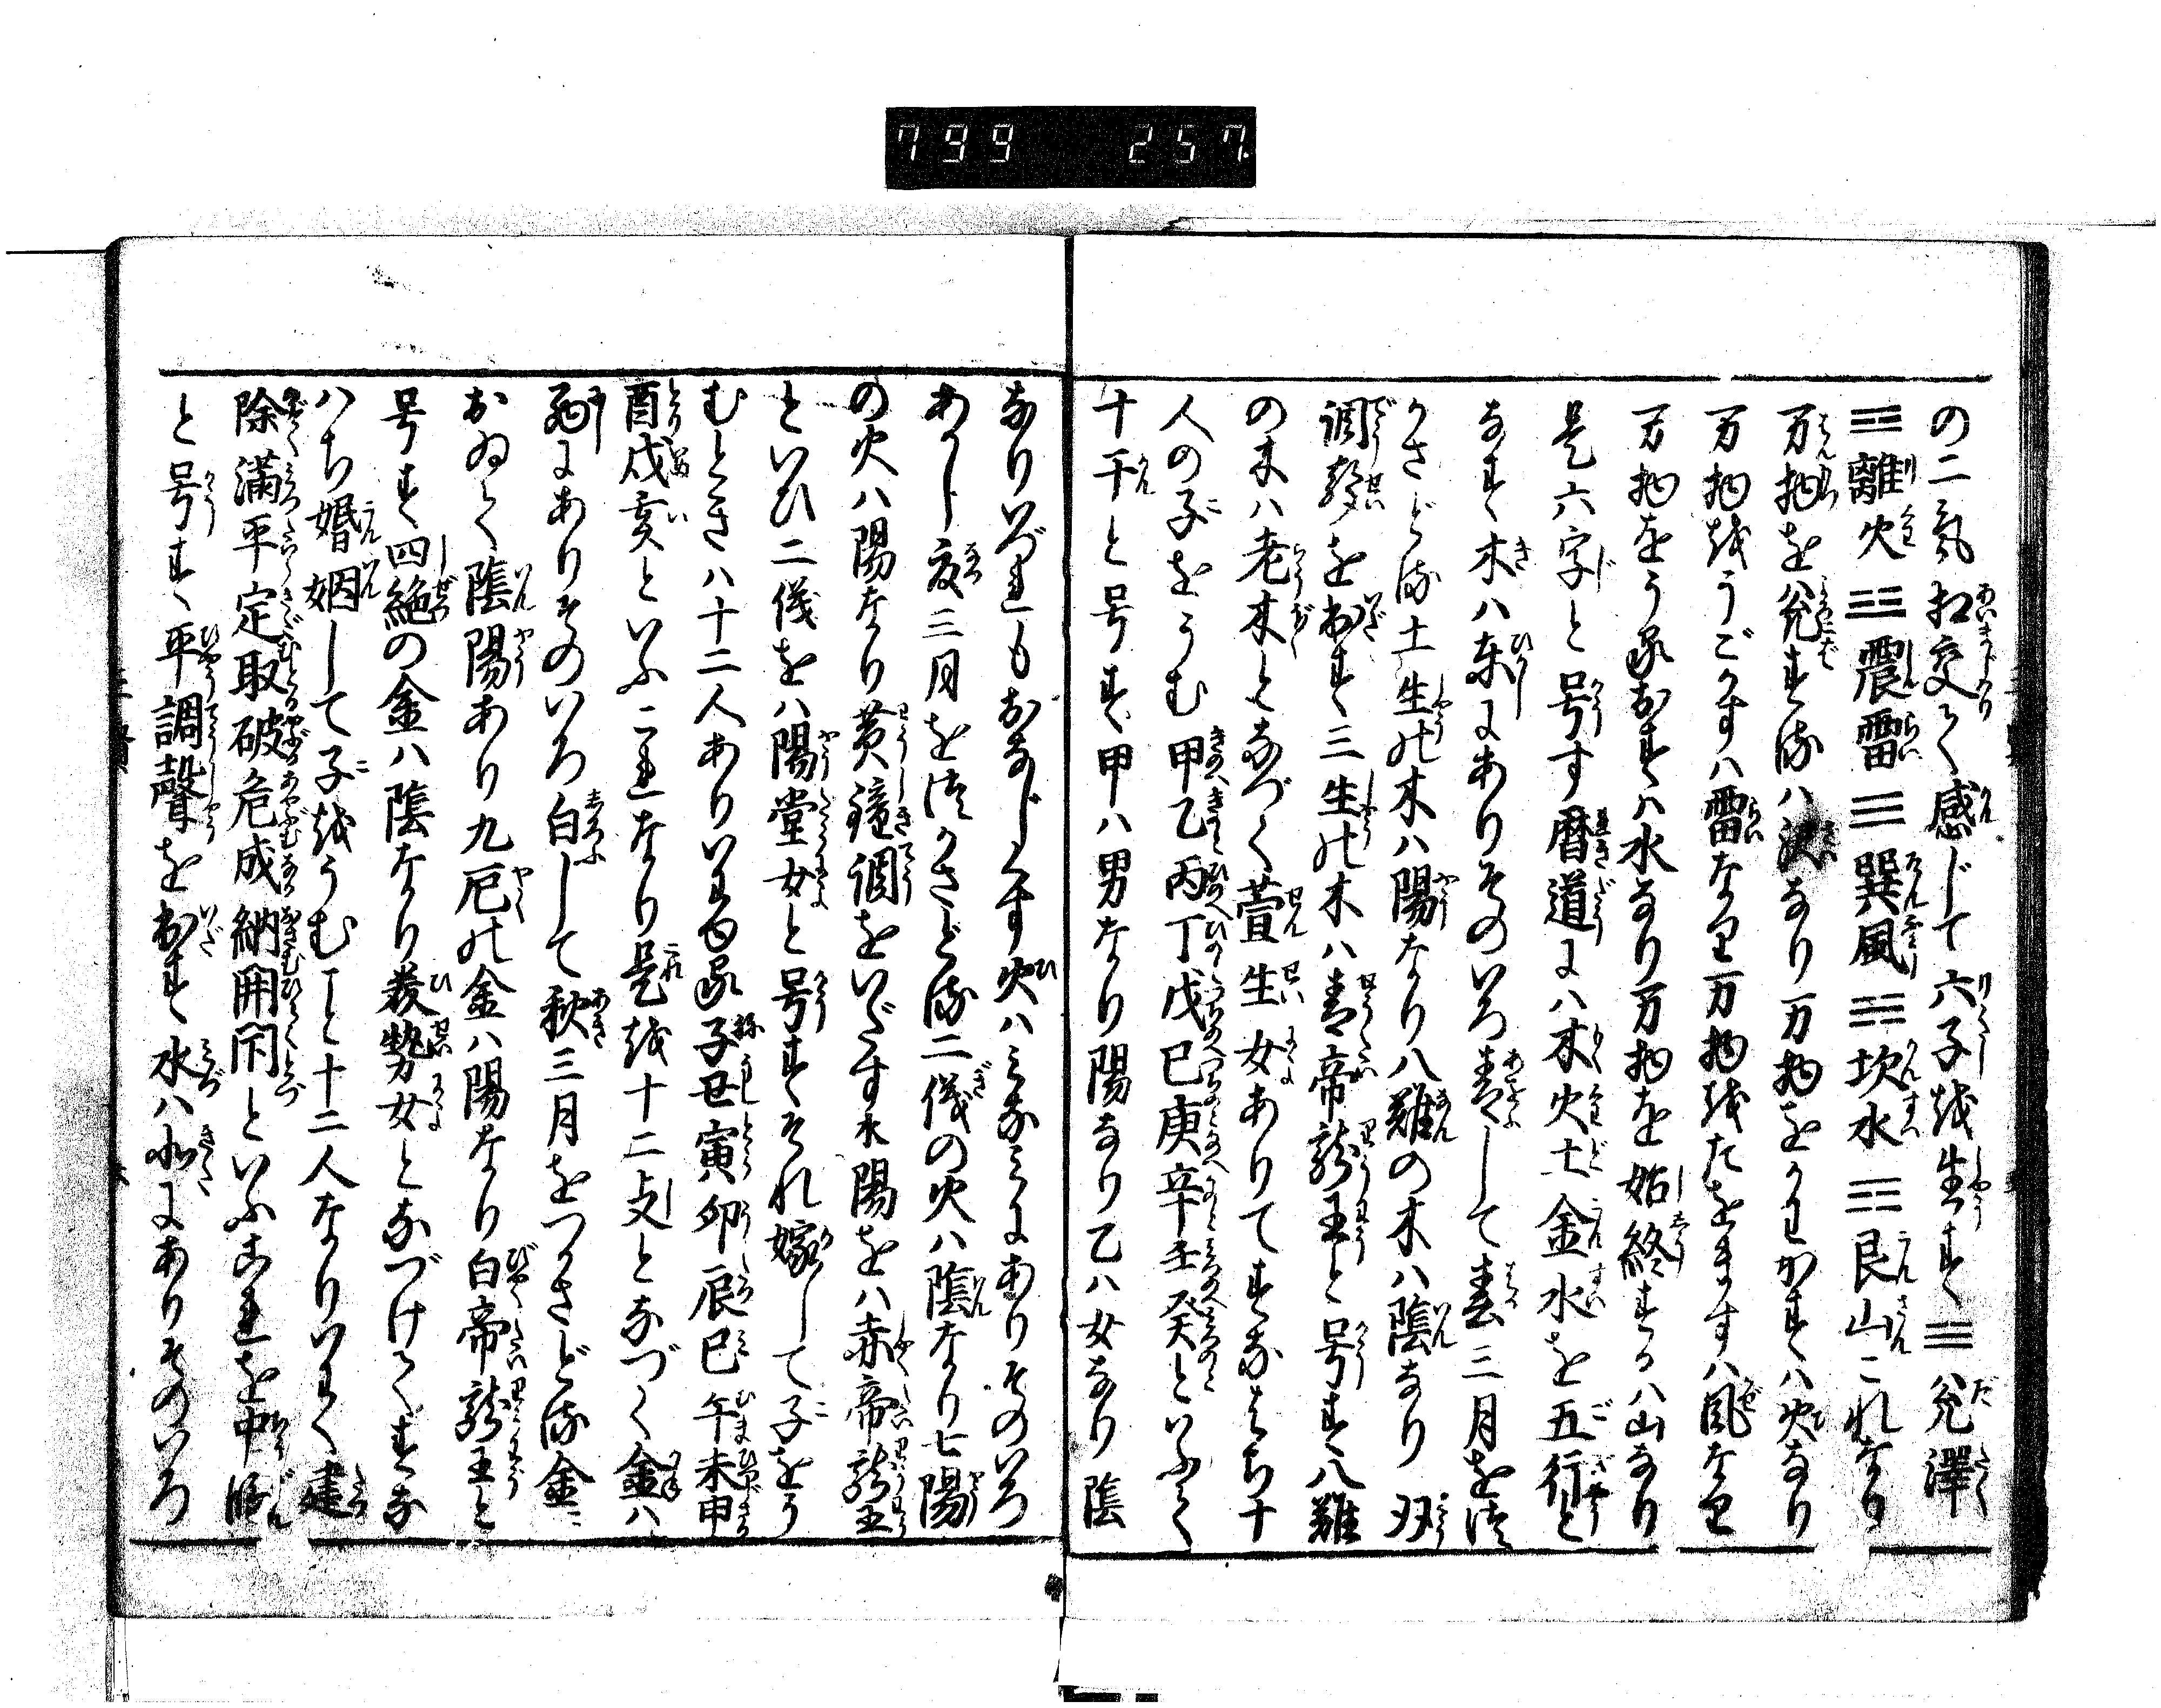 799 257
の二気相交て感じて六子を生ず ☱兌澤
☲離火 ☳震雷 ☴巽風 ☵坎水 ☶艮山これなり
万物を兌す者ハ沢なり万物をかわかす ハ火なり
万物越うごかすハ雷なり万物越たをますハ風なり
万物をうるおすハ水なり万物を始終するハ山なり
是六字と号す暦道にハ木火土金水を五行と
なす木ハ東にありそのいろ青して春三月をつ
かさどる土生の木ハ陽なり八難の木ハ陰なり双
調聲を出す三生の木ハ青帝龍王と号す八難
の木ハ老木となづく萱生女ありてすなはち十
人の子をうむ甲乙丙丁戊己庚辛壬癸といふて
十干と号す甲ハ男なり陽なり乙ハ女なり陰
なりいづれもおなじくす火ハみなみにありそのいろ
あかし夏三月をつかさどる二儀の火ハ陰なり七陽
の火ハ陽なり黄鐘調をいだす七陽をハ赤帝龍王
といひ二儀をハ陽堂女と号すそれ嫁して子をう
むときハ十二人ありいはゆる子丑寅卯辰巳午未申
酉戌亥といふこれなり是越十二支となづく金ハ
西にありそのいろ白して秋三月をつかさどる金に
おゐて陰陽あり九厄の金ハ陽なり白帝龍王と
号す四絶の金ハ陰なり發勢女となづけてすな
ハち婚姻して子越うむこと十二人なりいはく建
除満平定取破危成納開閇といふこれを中段
と号す平調聲を出す水ハ北にありそのいろ